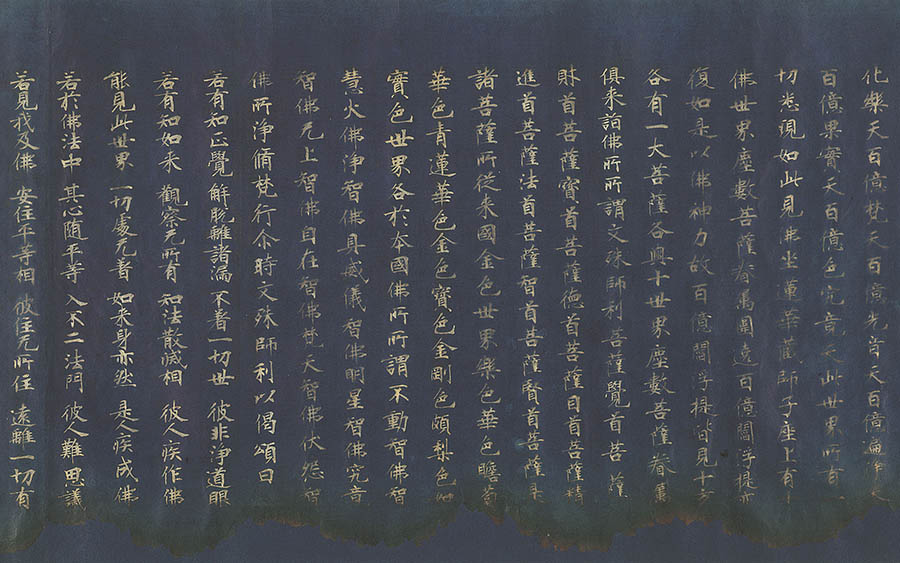 化樂天百億梵天百億光音天百億遍淨天
百億果實天百億色究竟天此世界所有一
切悉現如此見佛坐蓮華藏師子座上有十
佛世界塵數菩薩眷屬圍遶百億閻浮提亦
復如是以佛神力故百億閻浮提皆見十方
各有一大菩薩各與十世界塵數菩薩眷屬
俱来詣佛所所謂文殊師利菩薩覺首菩薩
財首菩薩寶首菩薩德首菩薩目首菩薩精
進首菩薩法首菩薩智首菩薩賢首菩薩是
諸菩薩所從来國金色世界樂色華色瞻蔔
華色青蓮華色金色寶色金剛色頗梨色
寶色世界各於本國佛所所謂不動智佛智
慧火佛淨智佛具威儀智佛明星智佛究竟
智佛无上智佛自在智佛梵天智佛伏怨智
佛所淨脩梵行尒時文殊師利以偈頌曰
若有知正覺 解脫離諸漏 不著一切世 彼非淨道眼
若有知如来 觀察无所有 知法散滅相 彼人疾作佛
能見此世界 一切處无著 如来身亦然 是人疾成佛
若於佛法中 其心随平等 入不二法門 彼人難思議
若見我及佛 安住平等相 彼住无所住 遠離一切有